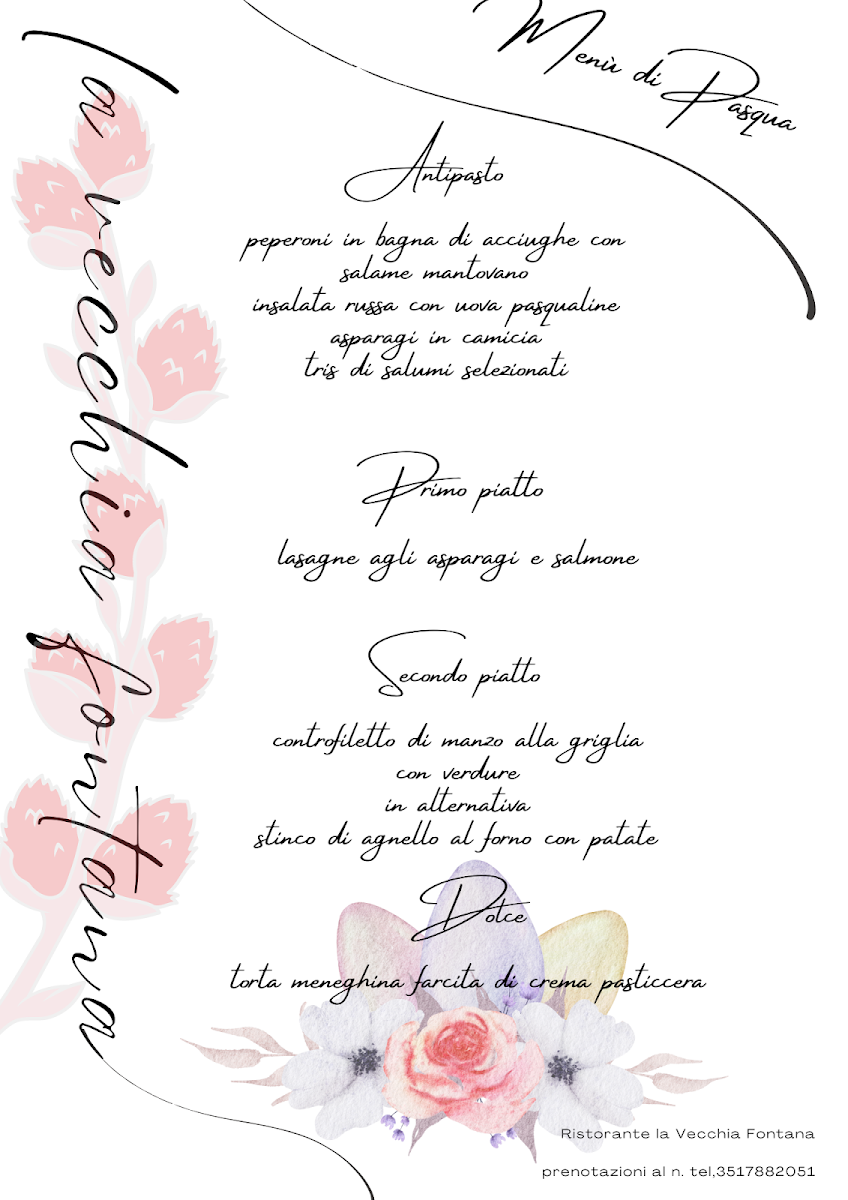 la vecchia fontana
Menù di Pasqua
Antipasto
peperoni in bagna di acciughe con
salame mantovano
insalata russa con uova pasqualine
asparagi in camicia
tris di salumi selezionati
Primo piatto
lasagne agli asparagi e salmone
Secondo piatto
controfiletto di manzo alla griglia
con verdure
in alternativa
stinco di agnello al forno con patate
Dolce
torta meneghina farcita di crema pasticcera
Ristorante la Vecchia Fontana
prenotazioni al n. tel,3517882051